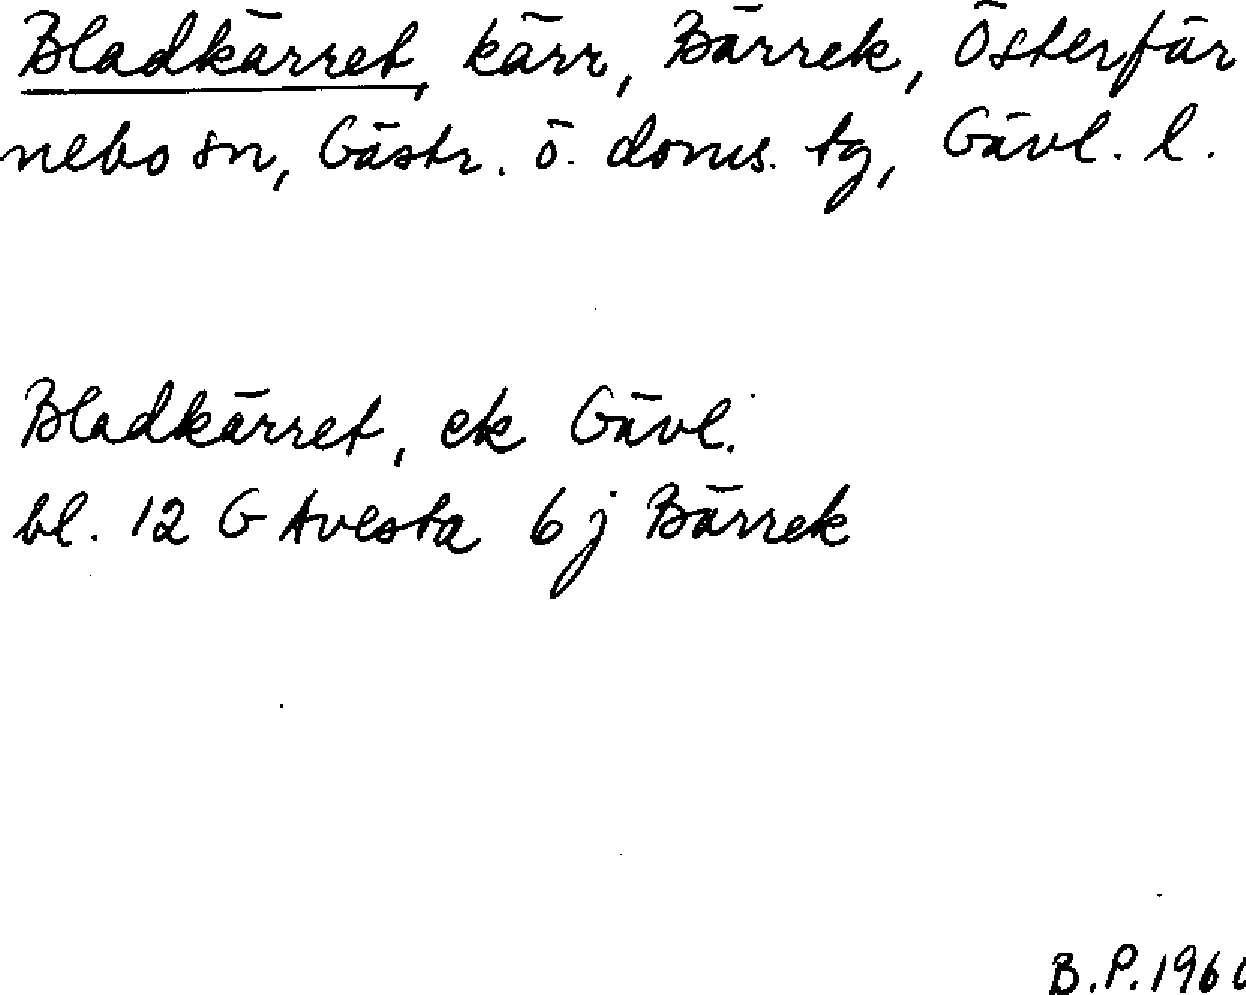 Bladkärret, kärr, Bärrek, Österfär
nebo sn, Gästr. ö. doms. tg, Gävl. l.
Bladkärret, ek Gävl.
bl. 12 G Avesta 6 j Bärrek
B.P. 1960